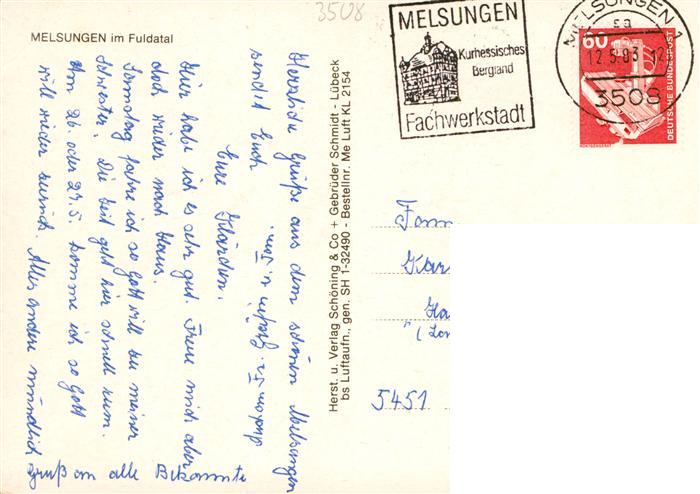 3508
MELSUNGEN im Fuldatal
MELSUNGEN
Kurhessisches
Bergland
Fachwerkstadt
MELSUNGEN 1
sa
12.5.83
3508
60
DEUTSCHE BUNDESPOST
RÖNTGENGERÄT
Herzliche Grüße aus dem schönen Melsungen
sendet Euch
Eure
Hier habe ich es sehr gut. Freue mich aber
doch wieder nach Haus.
Sonntag fahre ich so Gott will zu meiner
Schwester. Die Zeit geht hier schnell rum.
Am 26. oder 27.5. komme ich so Gott
will wieder zurück. Alles andere mündlich
Gruß an alle Bekannte
Herst. u. Verlag Schöning & Co + Gebrüder Schmidt - Lübeck
bs Luftaufn., gen. SH 1-32490 - Bestellnr. Me Luft KL 2154
Fam
Kar
Ha
5451